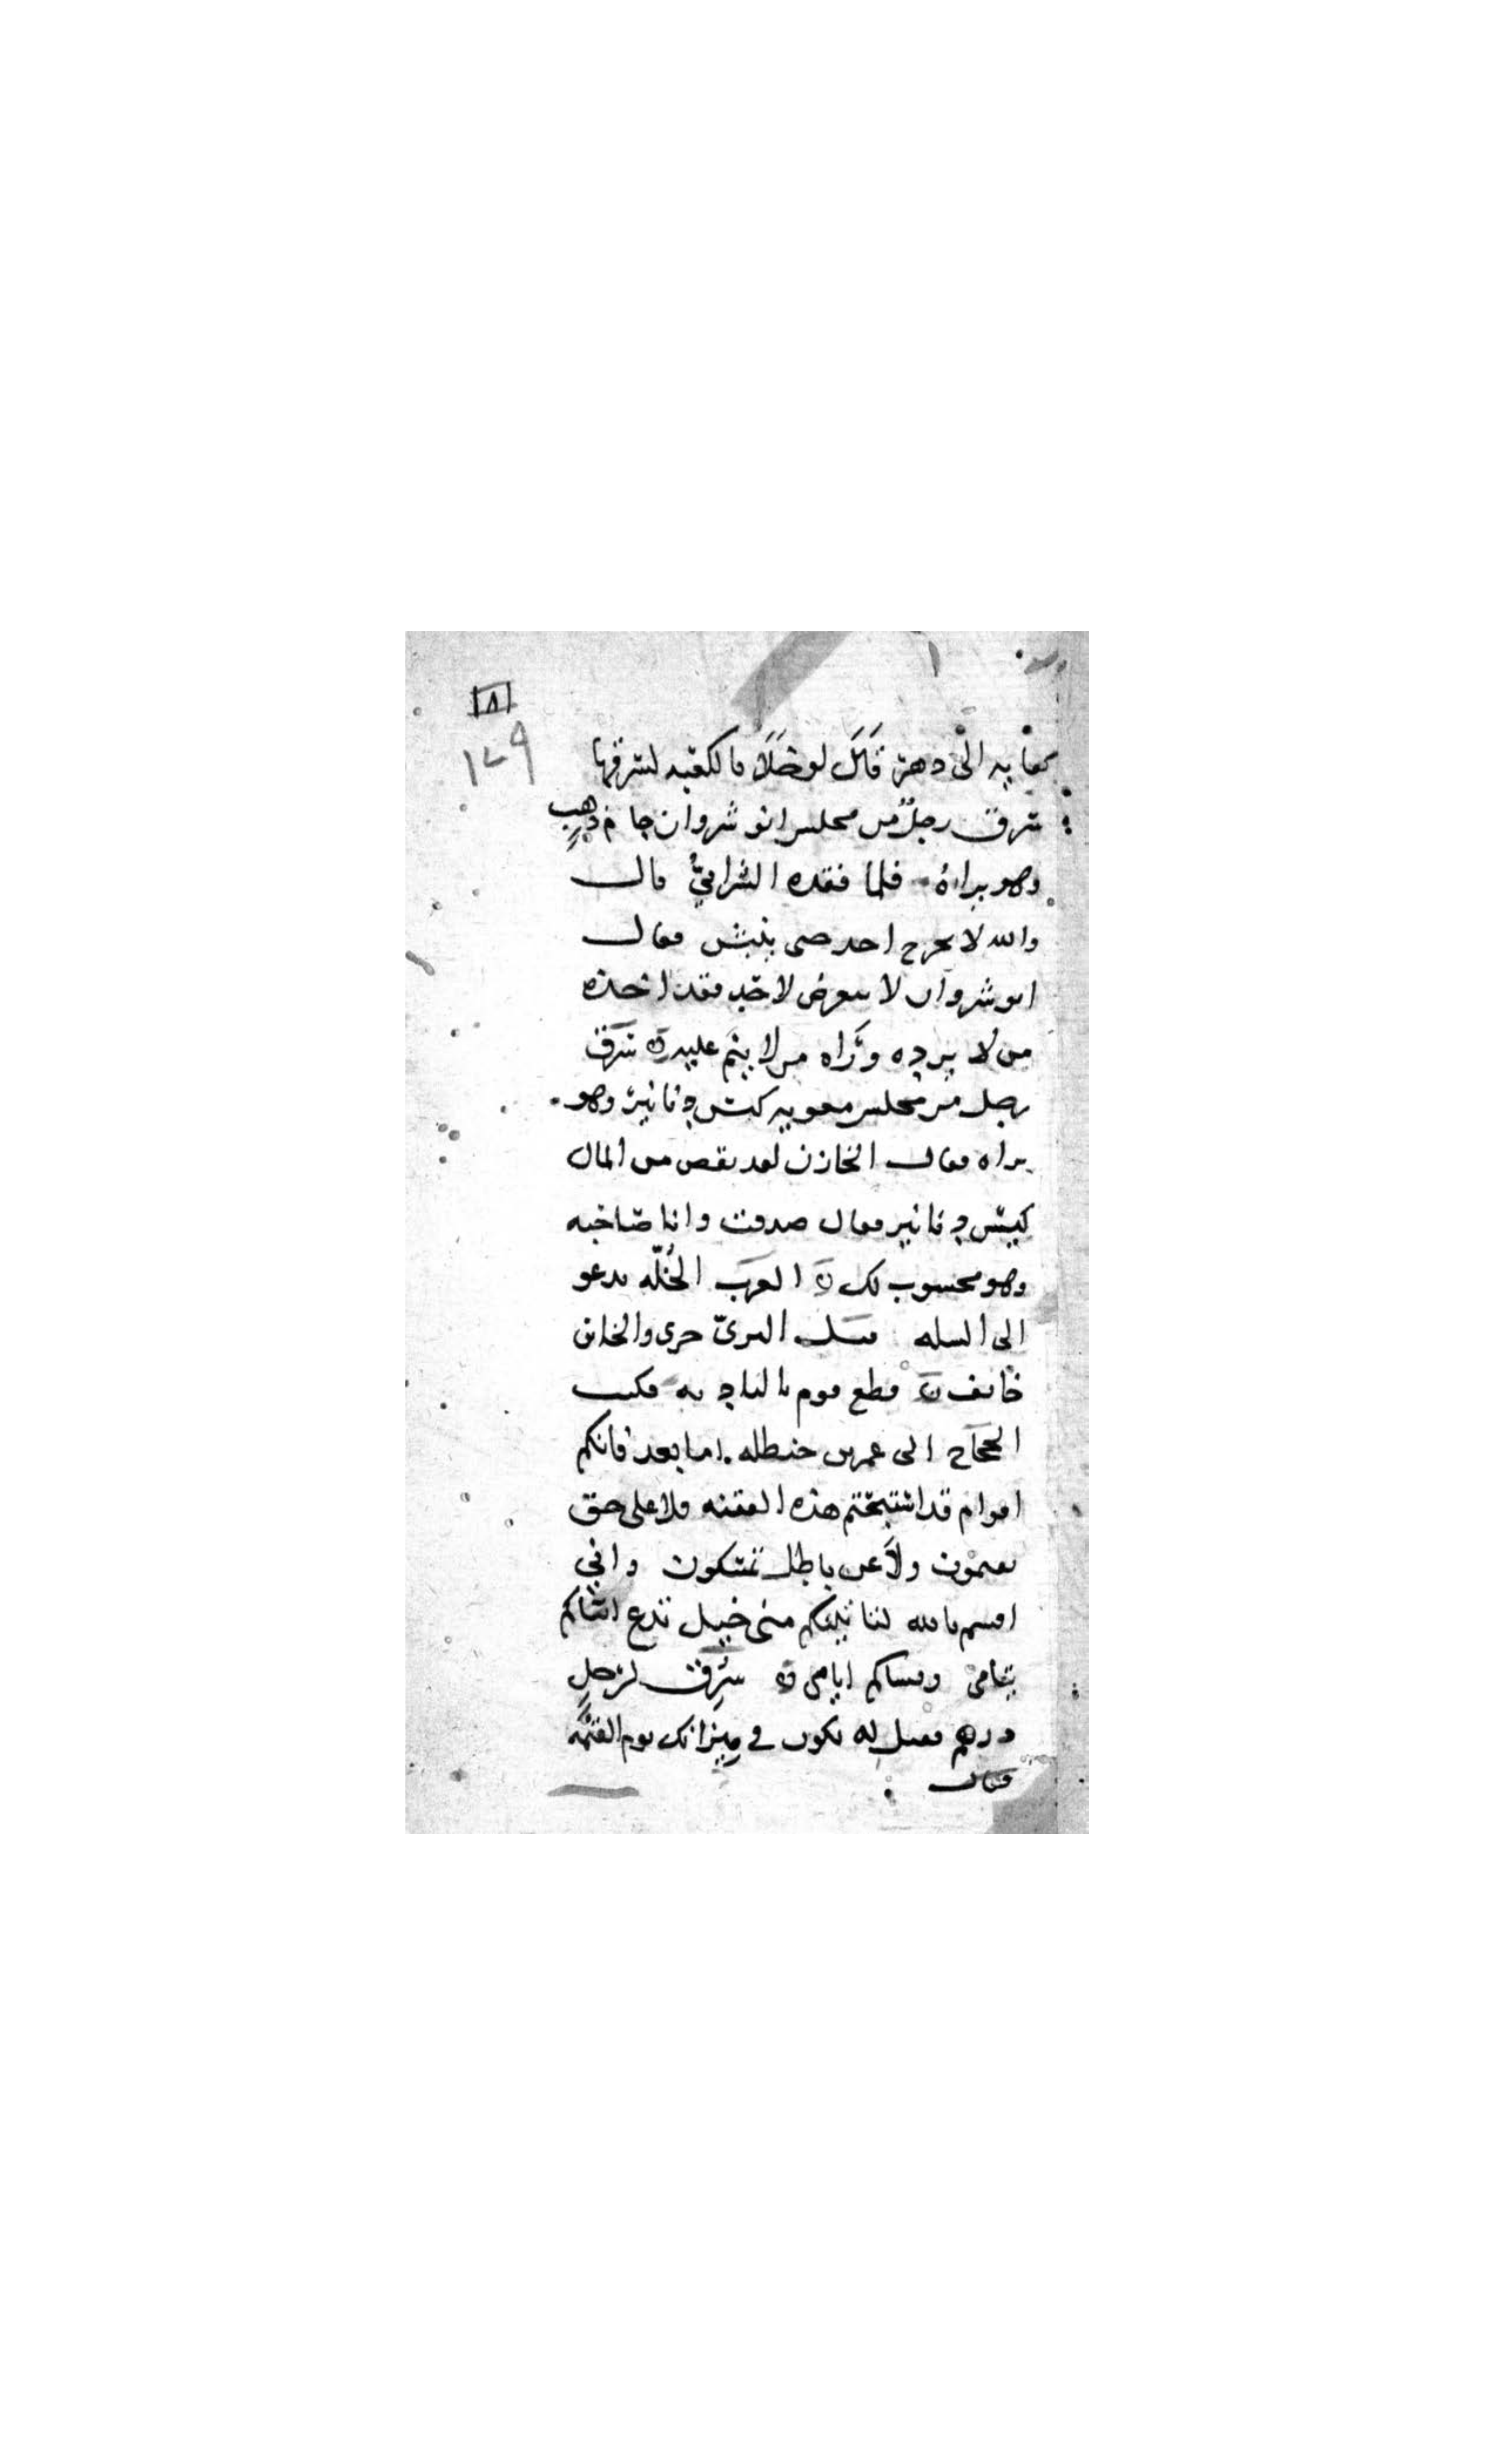 ١٨
١٤٩
به الى دهر قال لو خلا بالكعبه لسرقها
سرق رجل من مجلس انوشروان جام ذهب
وهو يراه فلما فقده الشرابي قال
والله لا يخرج احد حتى يفتش فقال
انوشروان لا يتعرض لاحد فقد اخذه
من لا يرده ورآه من لا ينم عليه ۞ سرق
رجل من مجلس معويه كيس دنانير وهو
يراه فقال الخازن لقد نقص من المال
كيس دنانير فقال صدقت وانا صاحبه
وهو محسوب لك ۞ العرب الخلّه تدعو
الى السله فيل البرىّ جرى والخائن
خائف ۞ قطع قوم بالباديه فكتب
الحجاج الى عمرو بن حنظله اما بعد فانكم
اقوام قد استبحتم هذه الفتنه فلا على حق
تقيمون ولا عن باطل تمسكون واني
اقسم بالله لتاتينكم منى خيل تدع ابناكم
يتامى ونساكم ايامى ۞ سُرِق لرجلٍ
درهم فقيل له يكون في ميزانك يوم القيمه
فقال